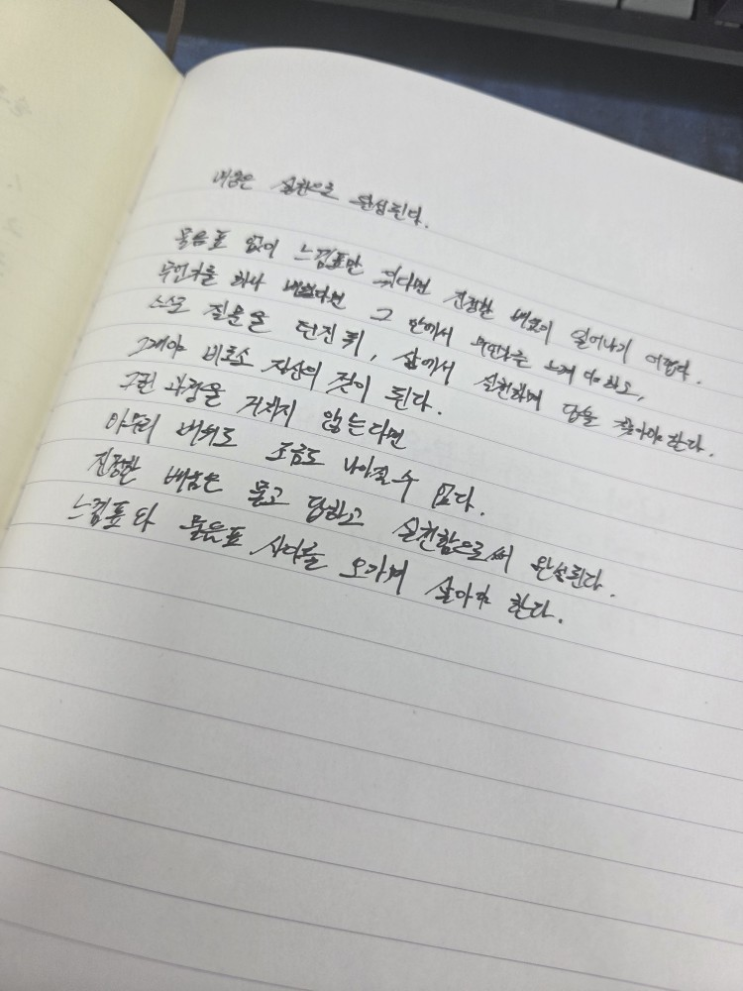 배움은 실천으로 완성된다.
물음표 없이 느낌표만 된다면 진정한 배움이 일어나기 어렵다.
무언가를 하나 배웠다면 그 안에서 무언가를 느껴야 하고,
스스로 질문을 던진 뒤, 삶에서 실천하며 답을 찾아야 한다.
그제야 비로소 자신의 것이 된다.
그런 과정을 거치지 않는다면
아무리 배워도 조금도 나아질 수 없다.
진정한 배움은 묻고 답하고 실천함으로써 완성된다.
느낌표와 물음표 사이를 오가며 살아야 한다.